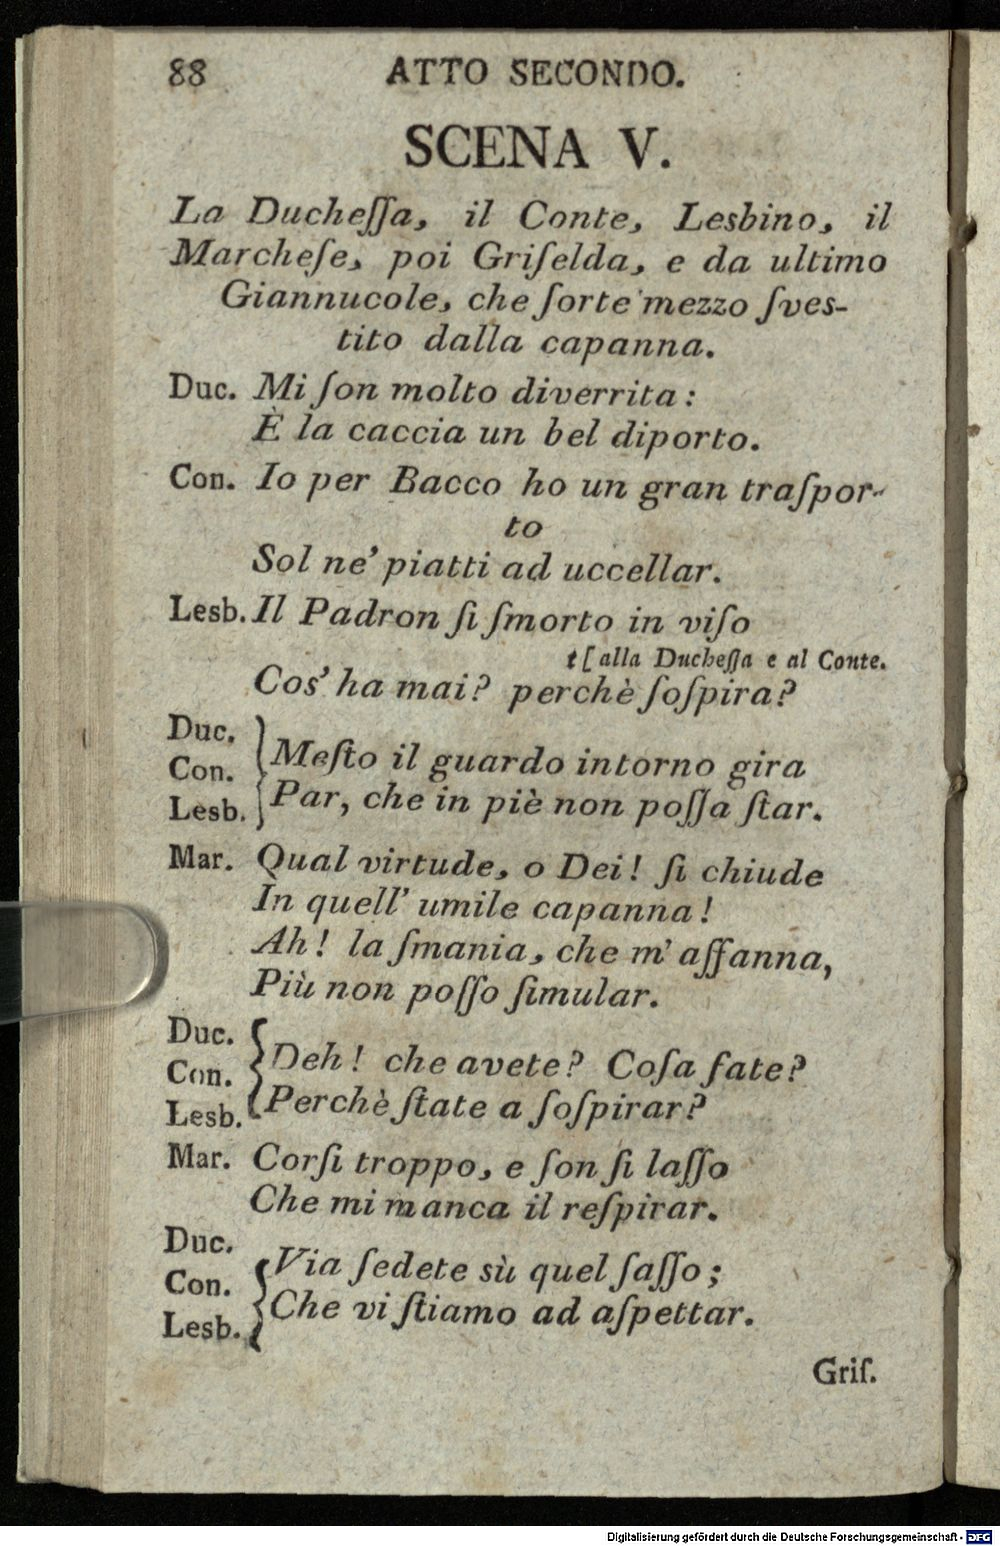 88 ATTO SECONDO.
SCENA V.
La Ducheſſa, il Conte, Lesbino, il
Marcheſe, poi Griſelda, e da ultimo
Giannucole, che ſorte mezzo ſves-
tito dalla capanna.
Duc. Mi ſon molto diverrita:
È la caccia un bel diporto.
Con. Io per Bacco ho un gran traſpor-
to
Sol ne' piatti ad uccellar.
Lesb. Il Padron ſi ſmorto in viſo
t[alla Ducheſſa e al Conte.
Cos' ha mai? perchè ſoſpira?
Duc.
Con.
Lesb.
Meſto il guardo intorno gira
Par, che in piè non poſſa ſtar.
Mar. Qual virtude, o Dei! ſi chiude
In quell' umile capanna!
Ah! la ſmania, che m' affanna,
Più non poſſo ſimular.
Duc.
Con.
Lesb.
Deh! che avete? Coſa fate?
Perchè ſtate a ſoſpirar?
Mar. Corſi troppo, e ſon ſi laſſo
Che mi manca il reſpirar.
Duc.
Con.
Lesb.
Via ſedete sù quel ſaſſo;
Che vi ſtiamo ad aſpettar.
Griſ.
Digitalisierung gefördert durch die Deutsche Forschungsgemeinschaft - DFG